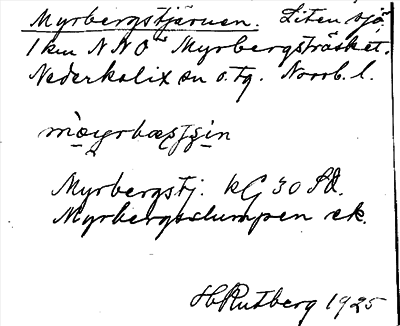 Myrbergstjärnen. Liten sjö
1 km NNO Myrbergsträsket.
Nederkalix sn o. tg. Norrb. l.
Myrbergstj. kG 30 Sd.
Myrbergsslumpen ek.
HRutberg 1925